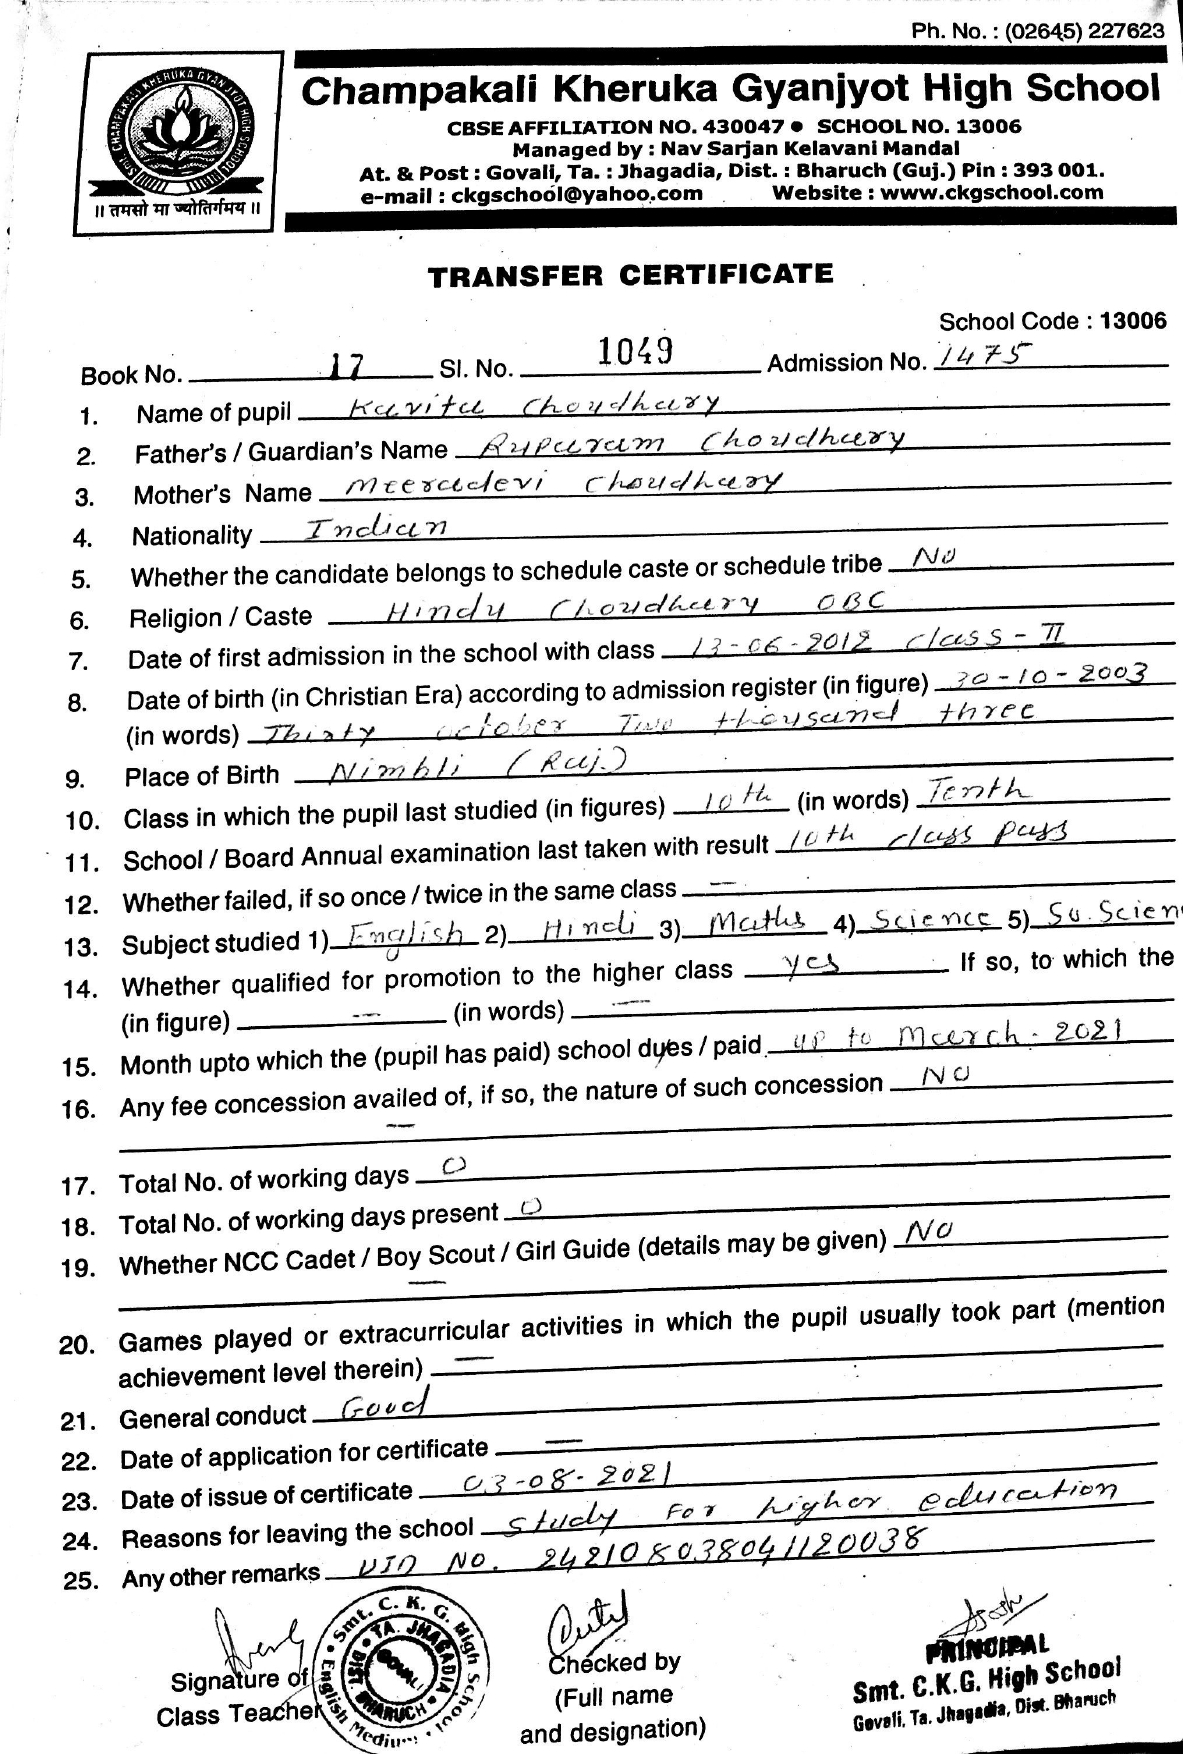 Ph. No. : (02645) 227623
CHAMPAKALI KHERUKA GYANJYOT HIGH SCHOOL
॥ तमसो मा ज्योतिर्गमय ॥
Champakali Kheruka Gyanjyot High School
CBSE AFFILIATION NO. 430047 ● SCHOOL NO. 13006
Managed by : Nav Sarjan Kelavani Mandal
At. & Post : Govali, Ta. : Jhagadia, Dist. : Bharuch (Guj.) Pin : 393 001.
e-mail : ckgschool@yahoo.com Website : www.ckgschool.com
TRANSFER CERTIFICATE
School Code : 13006
Book No. 17 Sl. No. 1049 Admission No. 1475
1. Name of pupil Kavita Choudhary
2. Father's / Guardian's Name Ruparam Choudhary
3. Mother's Name Meeradevi Choudhary
4. Nationality Indian
5. Whether the candidate belongs to schedule caste or schedule tribe No
6. Religion / Caste Hindu Choudhary OBC
7. Date of first admission in the school with class 13-06-2012 class - II
8. Date of birth (in Christian Era) according to admission register (in figure) 30-10-2003
(in words) Thirty october Two thousand three
9. Place of Birth Nimbli (Raj.)
10. Class in which the pupil last studied (in figures) 10th (in words) Tenth
11. School / Board Annual examination last taken with result 10th class pass
12. Whether failed, if so once / twice in the same class —
13. Subject studied 1) English 2) Hindi 3) Maths 4) Science 5) So. Scien
14. Whether qualified for promotion to the higher class yes If so, to which the
(in figure) — (in words) —
15. Month upto which the (pupil has paid) school dues / paid up to March - 2021
16. Any fee concession availed of, if so, the nature of such concession NO
—
17. Total No. of working days 0
18. Total No. of working days present 0
19. Whether NCC Cadet / Boy Scout / Girl Guide (details may be given) No
—
20. Games played or extracurricular activities in which the pupil usually took part (mention
achievement level therein) —
21. General conduct Good
22. Date of application for certificate —
23. Date of issue of certificate 03-08-2021
24. Reasons for leaving the school Study For higher education
25. Any other remarks UID NO. 242108038041120038
Signature of
Class Teacher
Smt. C. K. G. High School
English Medium
TA. JHAGADIA
DIST. BHARUCH
GOVALI
Checked by
(Full name
and designation)
PRINCIPAL
Smt. C.K.G. High School
Govali, Ta. Jhagadia, Dist. Bharuch